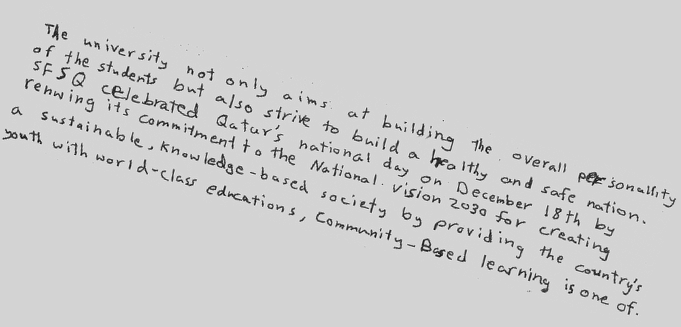 The university not only aims at building The overall personallity
of the students but also strive to build a healthy and safe nation.
SFSQ celebrated Qatar's national day on December 18th by
renwing its commitment to the National Vision 2030 for creating
a sustainable, knowledge-based society by providing the country's
youth with world-class educations, Community-Based learning is one of.